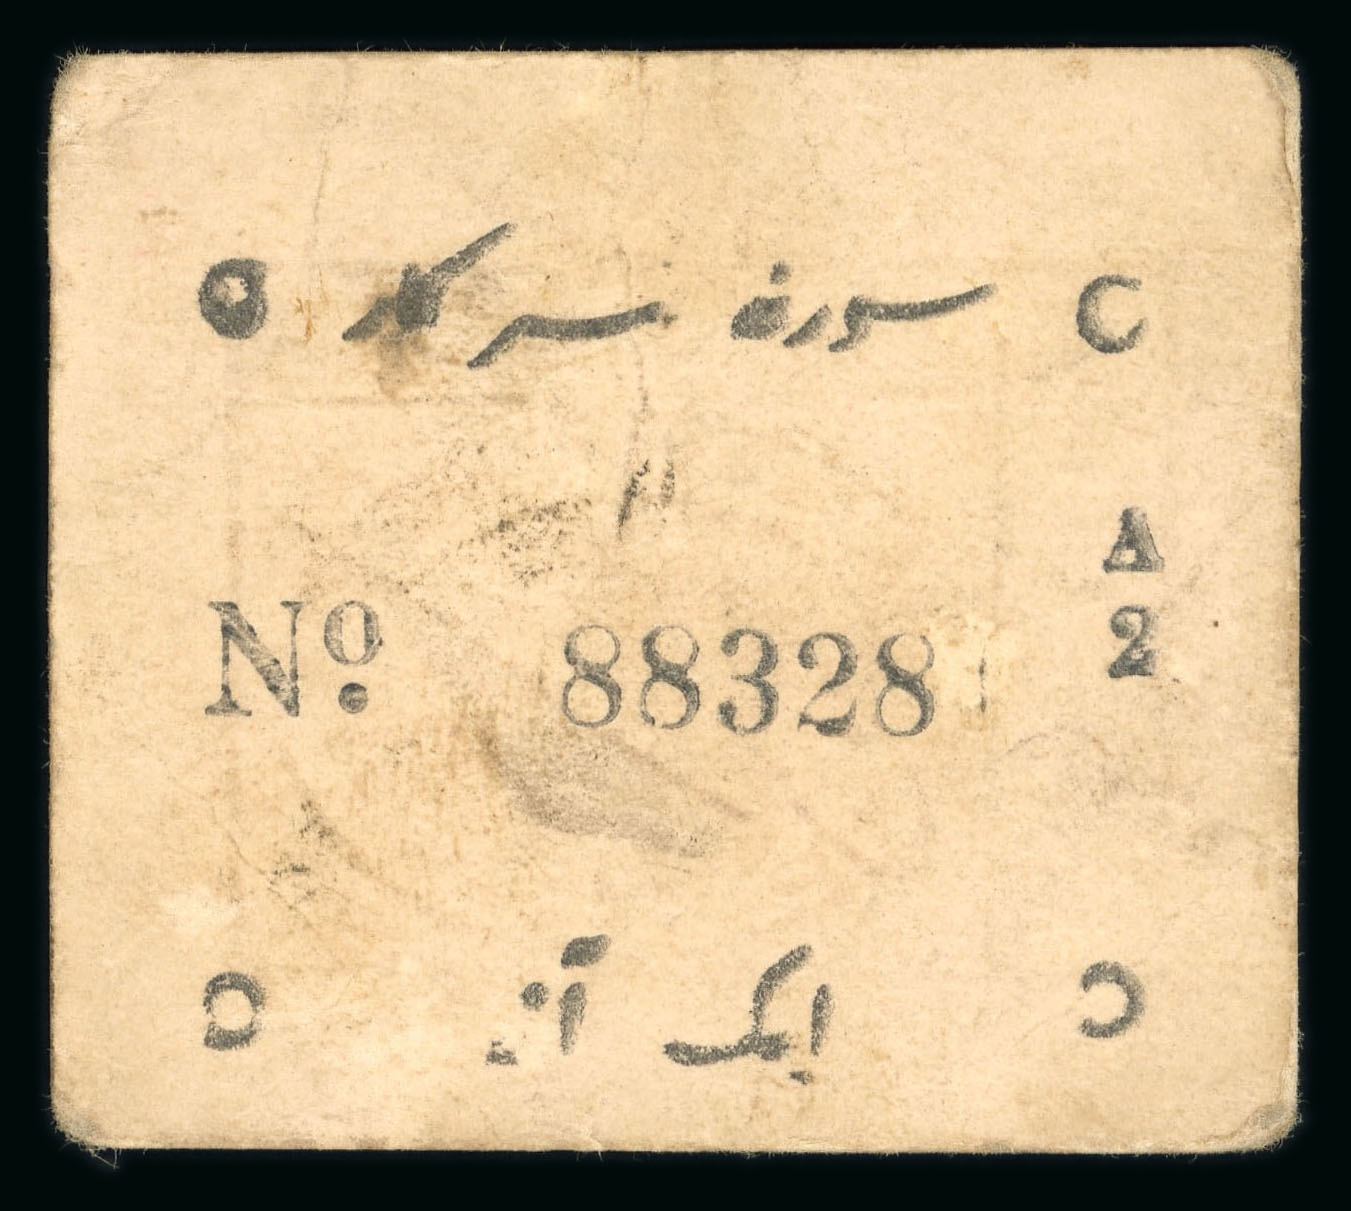 سورٹھ سرکار
A
2
Nº 88328
ایک آنہ